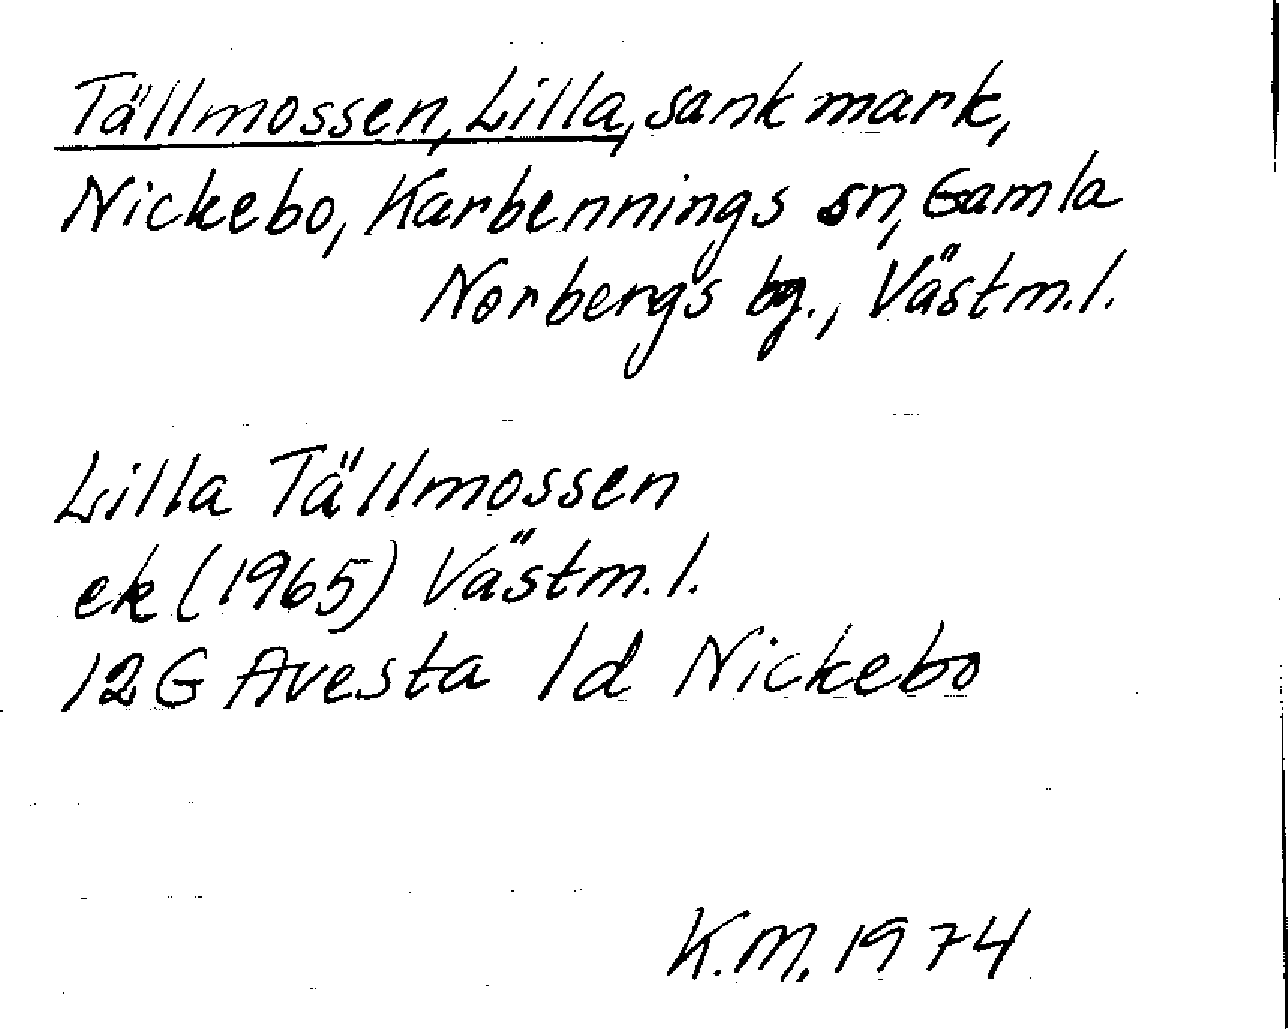 Tällmossen, Lilla, sank mark,
Nickebo, Karbennings sn, Gamla
Norbergs bg., Västm.l.
Lilla Tällmossen
ek (1965) Västm.l.
12G Avesta 1d Nickebo
K.M. 1974